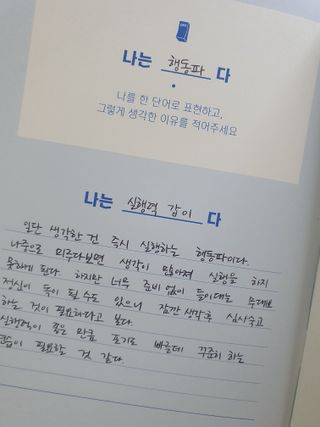 나는 행동파 다
나를 한 단어로 표현하고,
그렇게 생각한 이유를 적어주세요
나는 실행력 갑이 다
일단 생각한 건 즉시 실행하는 행동파이다.
나중으로 미루다보면 생각이 많아져 실행을 하지
못하게 된다. 하지만 너무 준비 없이 들이대는 무대포
정신이 독이 될 수도 있으니 잠깐 생각 후 심사숙고
하는 것이 필요하다고 본다.
실행력이 좋은 만큼 포기도 빠른데 꾸준히 하는
연습이 필요할 것 같다.